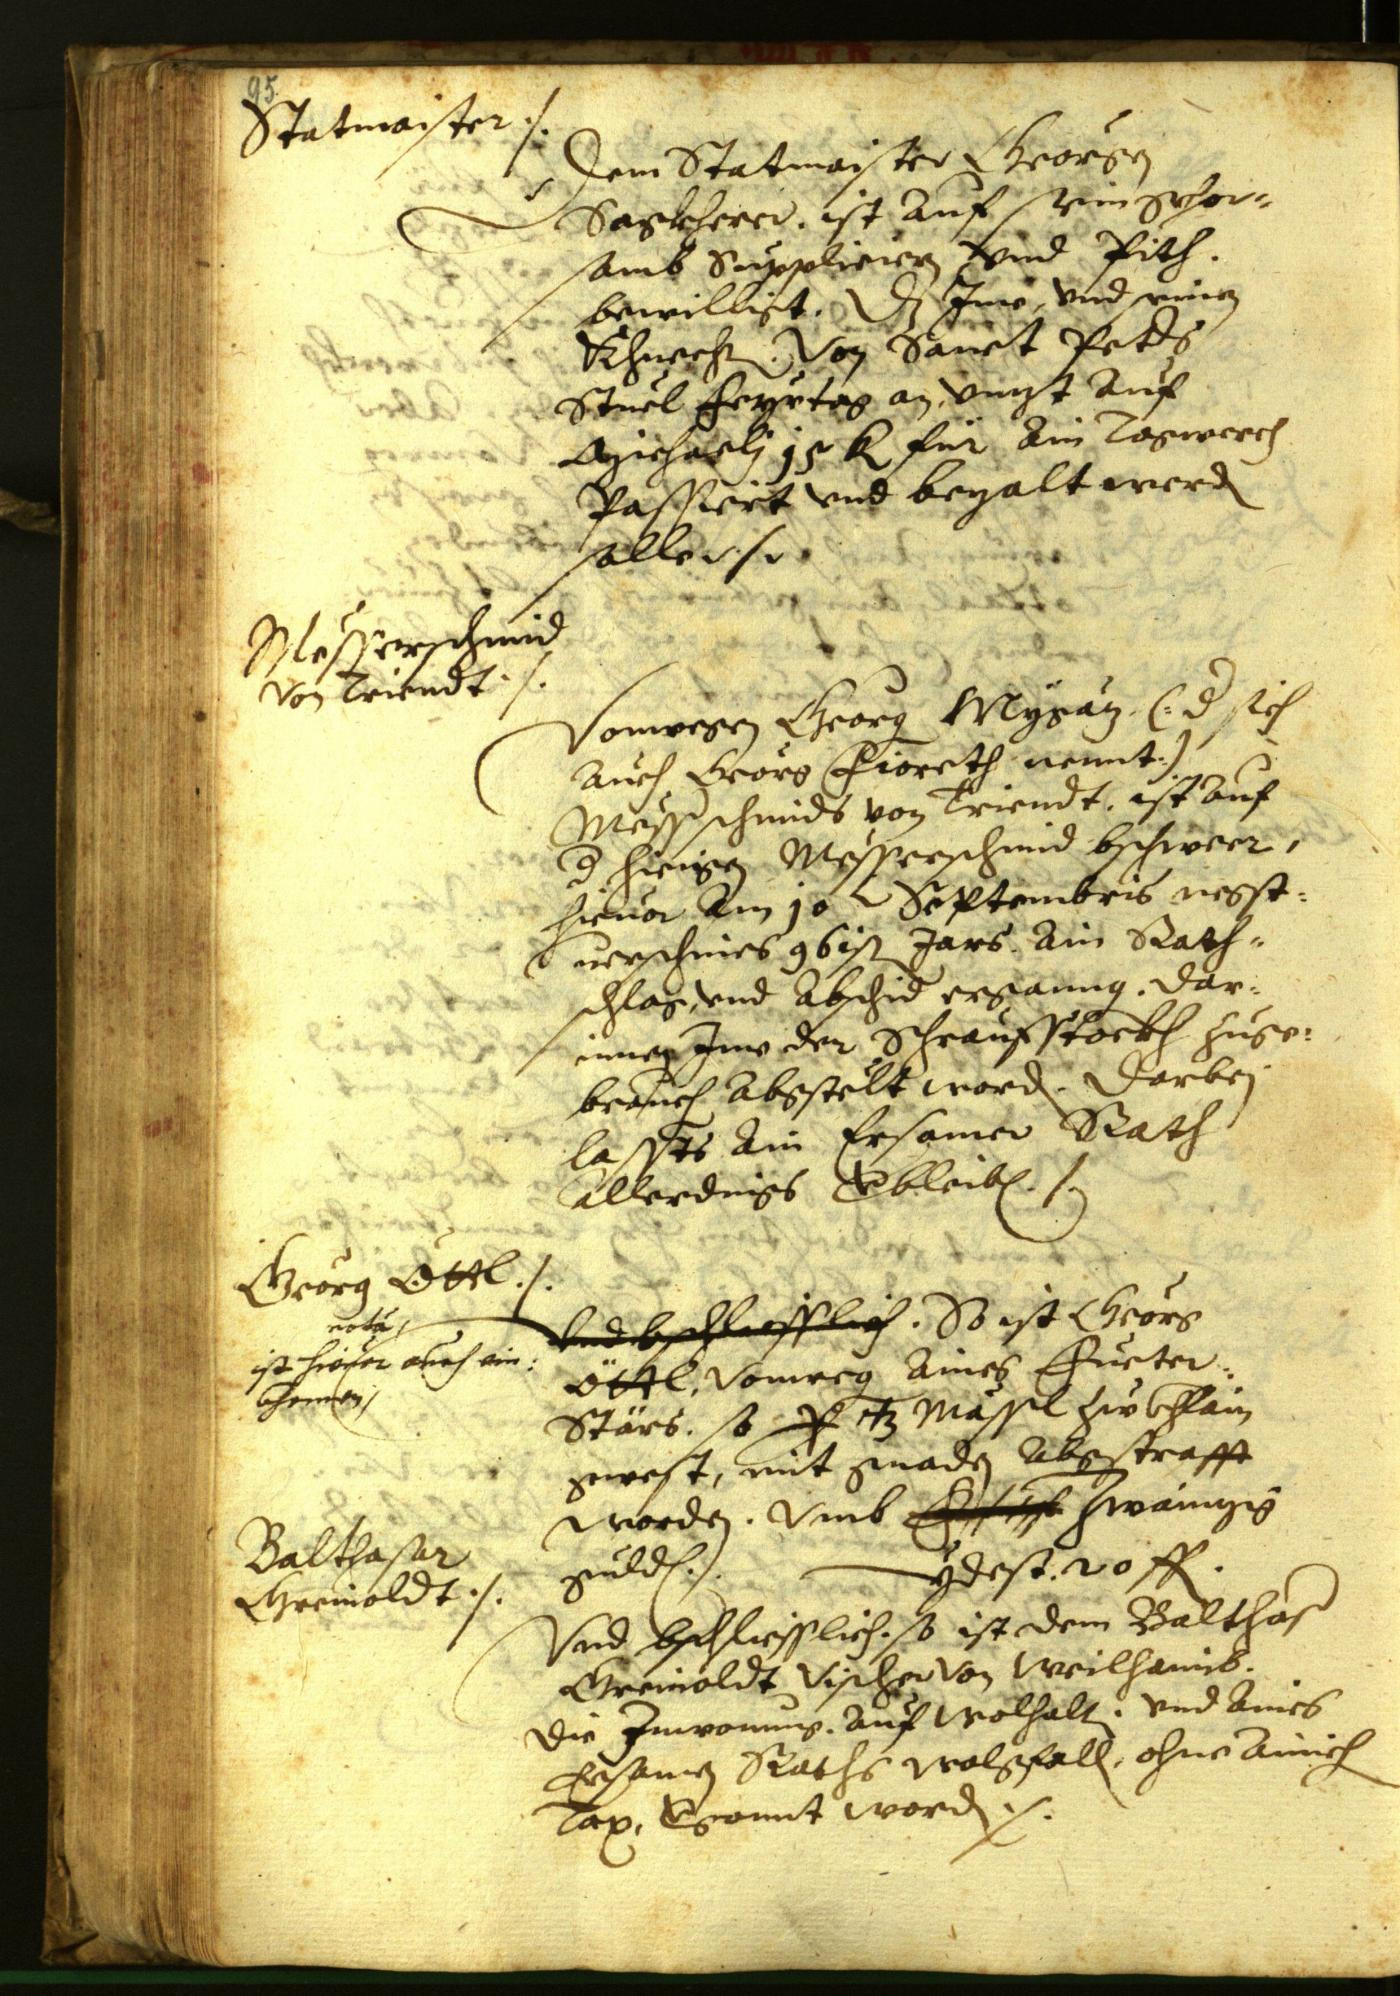 95.
Statmaister ./.
Dem Statmaister Georgen
Sagkherer. ist auf sein gehor-
samb Suppliciern vnd Pith.
bewilligt. Dz Ime, vnd seinen
Khnecht. Von Sanct Peters
Stuel Feyrtag an, vnnzt auf
Michaeli 15 k für ain Tagwerch
Passiert vnd bezalt werden
solle ./.
Messerschmid
von Triendt ./.
Vonwegen Georg (: der sich
auch Georg Fioreth nennt :)
Messerschmids von Triendt. ist auf
der hieigen Messerschmid bschwer,
hieuor am 10 Septembris negst-
uerschines 96ist Jars. ain Rath-
schlag, vnd Abschid ergangen. Dar-
innen Ime der Schraufstockh zuge-
brauch abgestelt worden. Darbej
lassts ain Ersamer Rath
allerdings verbleiben ./.
Georg Öttl ./.
nota,
ist hieuor auch ein-
khomen,
Vnd bschliesslich. So ist Georg
Öttl, vonweg aines Fueter-
Stärs. so Massl zu khlain
gwest, mit gnaden abgestrafft
worden. Vmb zwainzig
guldn. ydest. 20 ff.
Balthasar
Greinoldt ./.
Vnd bschliesslich. so ist dem Balthasar
Greinoldt Vischer von Weilhaimb.
die Inwonung. auf wolhalten. vnd aines
Ersamen Raths wolgfallen, ohne ainich
Tax, vergonnt worden ./.